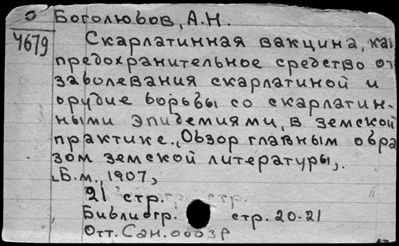 Боголюбов, А.Н.
4679
Скарлатинная вакцина, как
предохранительное средство от
заболевания скарлатиной и
орудие борьбы со скарлатин-
ными эпидемиями, в земской
практике. „Обзор главным обра
зом земской литературы„.
[Б.м., 1907,
21 стр.
Библиогр. стр. 20-21
Отт. Сан. обозр